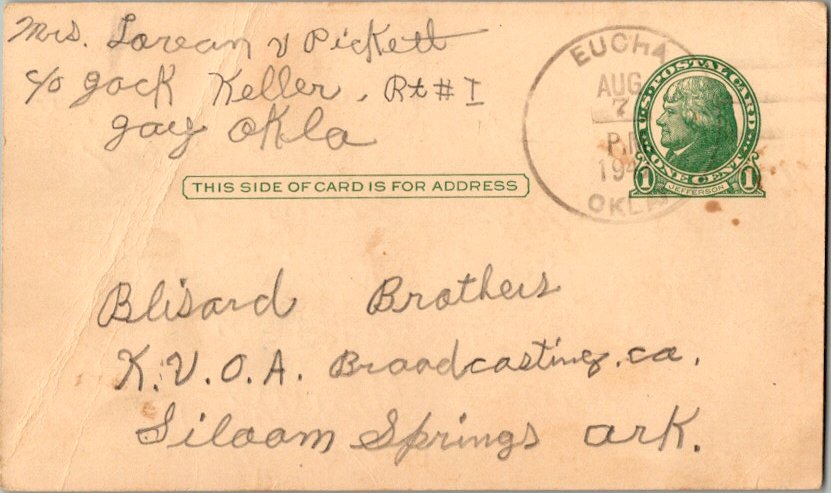 Mrs. Lorean V Pickett
c/o Jack Keller, Rt # I
Jay Okla
THIS SIDE OF CARD IS FOR ADDRESS
EUCHA
AUG
7
P.M
194
OKLA
U.S. POSTAL CARD
ONE CENT
1 JEFFERSON 1
Blisard Brothers
K.V.O.A. Broadcasting. co.
Siloam Springs Ark.